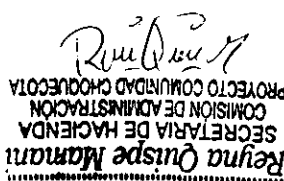 Reyna Quispe Mamani
SECRETARIA DE HACIENDA
COMISION DE ADMINISTRACION
PROYECTO COMUNIDAD CHOQUECOTA